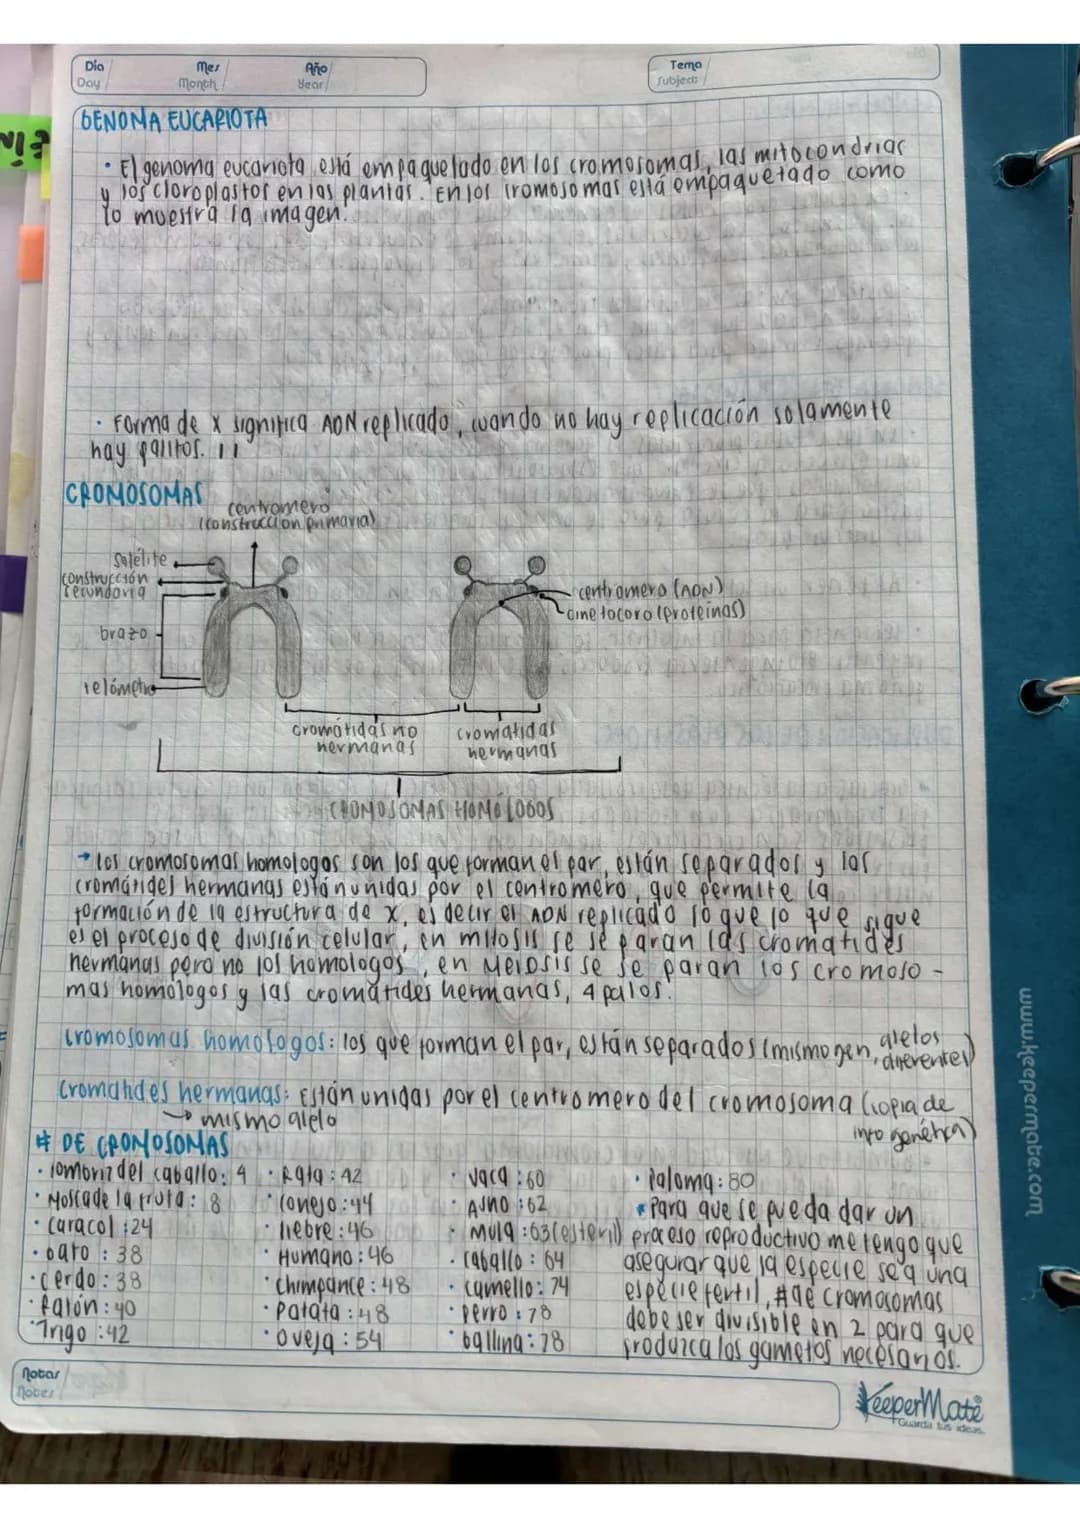 Día
Day
Mes
Month
Año
Year
Tema
Subject
GENOMA EUCARIOTA
• El genoma eucariota está empaquetado en los cromosomas, las mitocondrias
y los cloroplastos en las plantas. En los cromosomas está empaquetado como
lo muestra la imagen.
• Forma de x significa ADN replicado, cuando no hay replicación solamente
hay palitos. 11
CROMOSOMAS
centromero
(construccion primaria)
Satélite
construcción
secundaria
brazo
telómetro
centromero (ADN)
cinetocoro (proteínas)
cromátidas no
hermanas
cromatidas
hermanas
CROMOSOMAS HOMÓLOGOS
→ los cromosomas homologos son los que forman el par, están separados y las
cromátides hermanas están unidas por el centromero, que permite la
formación de la estructura de x, es decir el ADN replicado lo que lo que sigue
es el proceso de división celular, en mitosis se separan las cromatides
hermanas pero no los homologos, en Meiosis se separan los cromoso-
mas homologos y las cromatides hermanas, 4 palos.
Cromosomas homologos: los que forman el par, están separados (mismo gen, alelos
diferentes)
Cromatides hermanas: Están unidas por el centromero del cromosoma (copia de
info genética)
→ mismo alelo
# DE CROMOSOMAS
• lombriz del caballo: 4
• Moscade la fruta: 8
• caracol: 24
• Gato: 38
• cerdo: 38
• Ratón: 40
• Trigo: 42
• Rata: 42
• conejo: 44
• liebre: 46
• Humano: 46
• Chimpance: 48
• Patata: 48
• oveja: 54
• vaca: 60
• Asno: 62
• Mula: 63 (esteril)
• caballo: 64
• camello: 74
• perro: 78
• Gallina: 78
• Paloma: 80
* Para que se pueda dar un
proceso reproductivo me tengo que
asegurar que la especie sea una
especie fertil, # de cromosomas
debe ser divisible en 2 para que
produzca los gametos necesarios.
Notas
Notes
KeeperMate
Guarda tus ideas.
www.keepermate.com